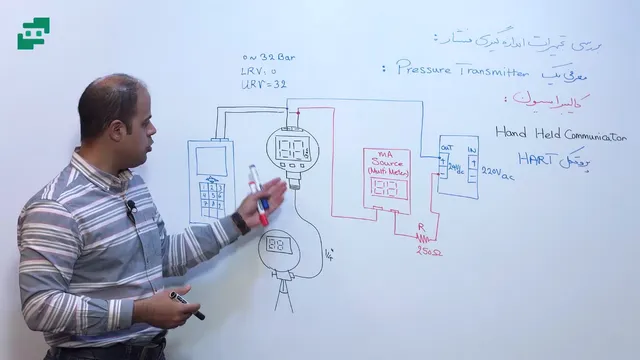 بررسی تجهیزات اندازه گیری فشار :
معرفی یک Pressure Transmitter :
کالیبراسیون :
Hand Held Communicator
پروتکل HART
0 ~ 32 Bar
LRV = 0
URV = 32
mA
Source
(Multi Meter)
OUT
IN
24V dc
220V ac
R
250Ω
1/4"
1 2 3
4 5 6
7 8 9